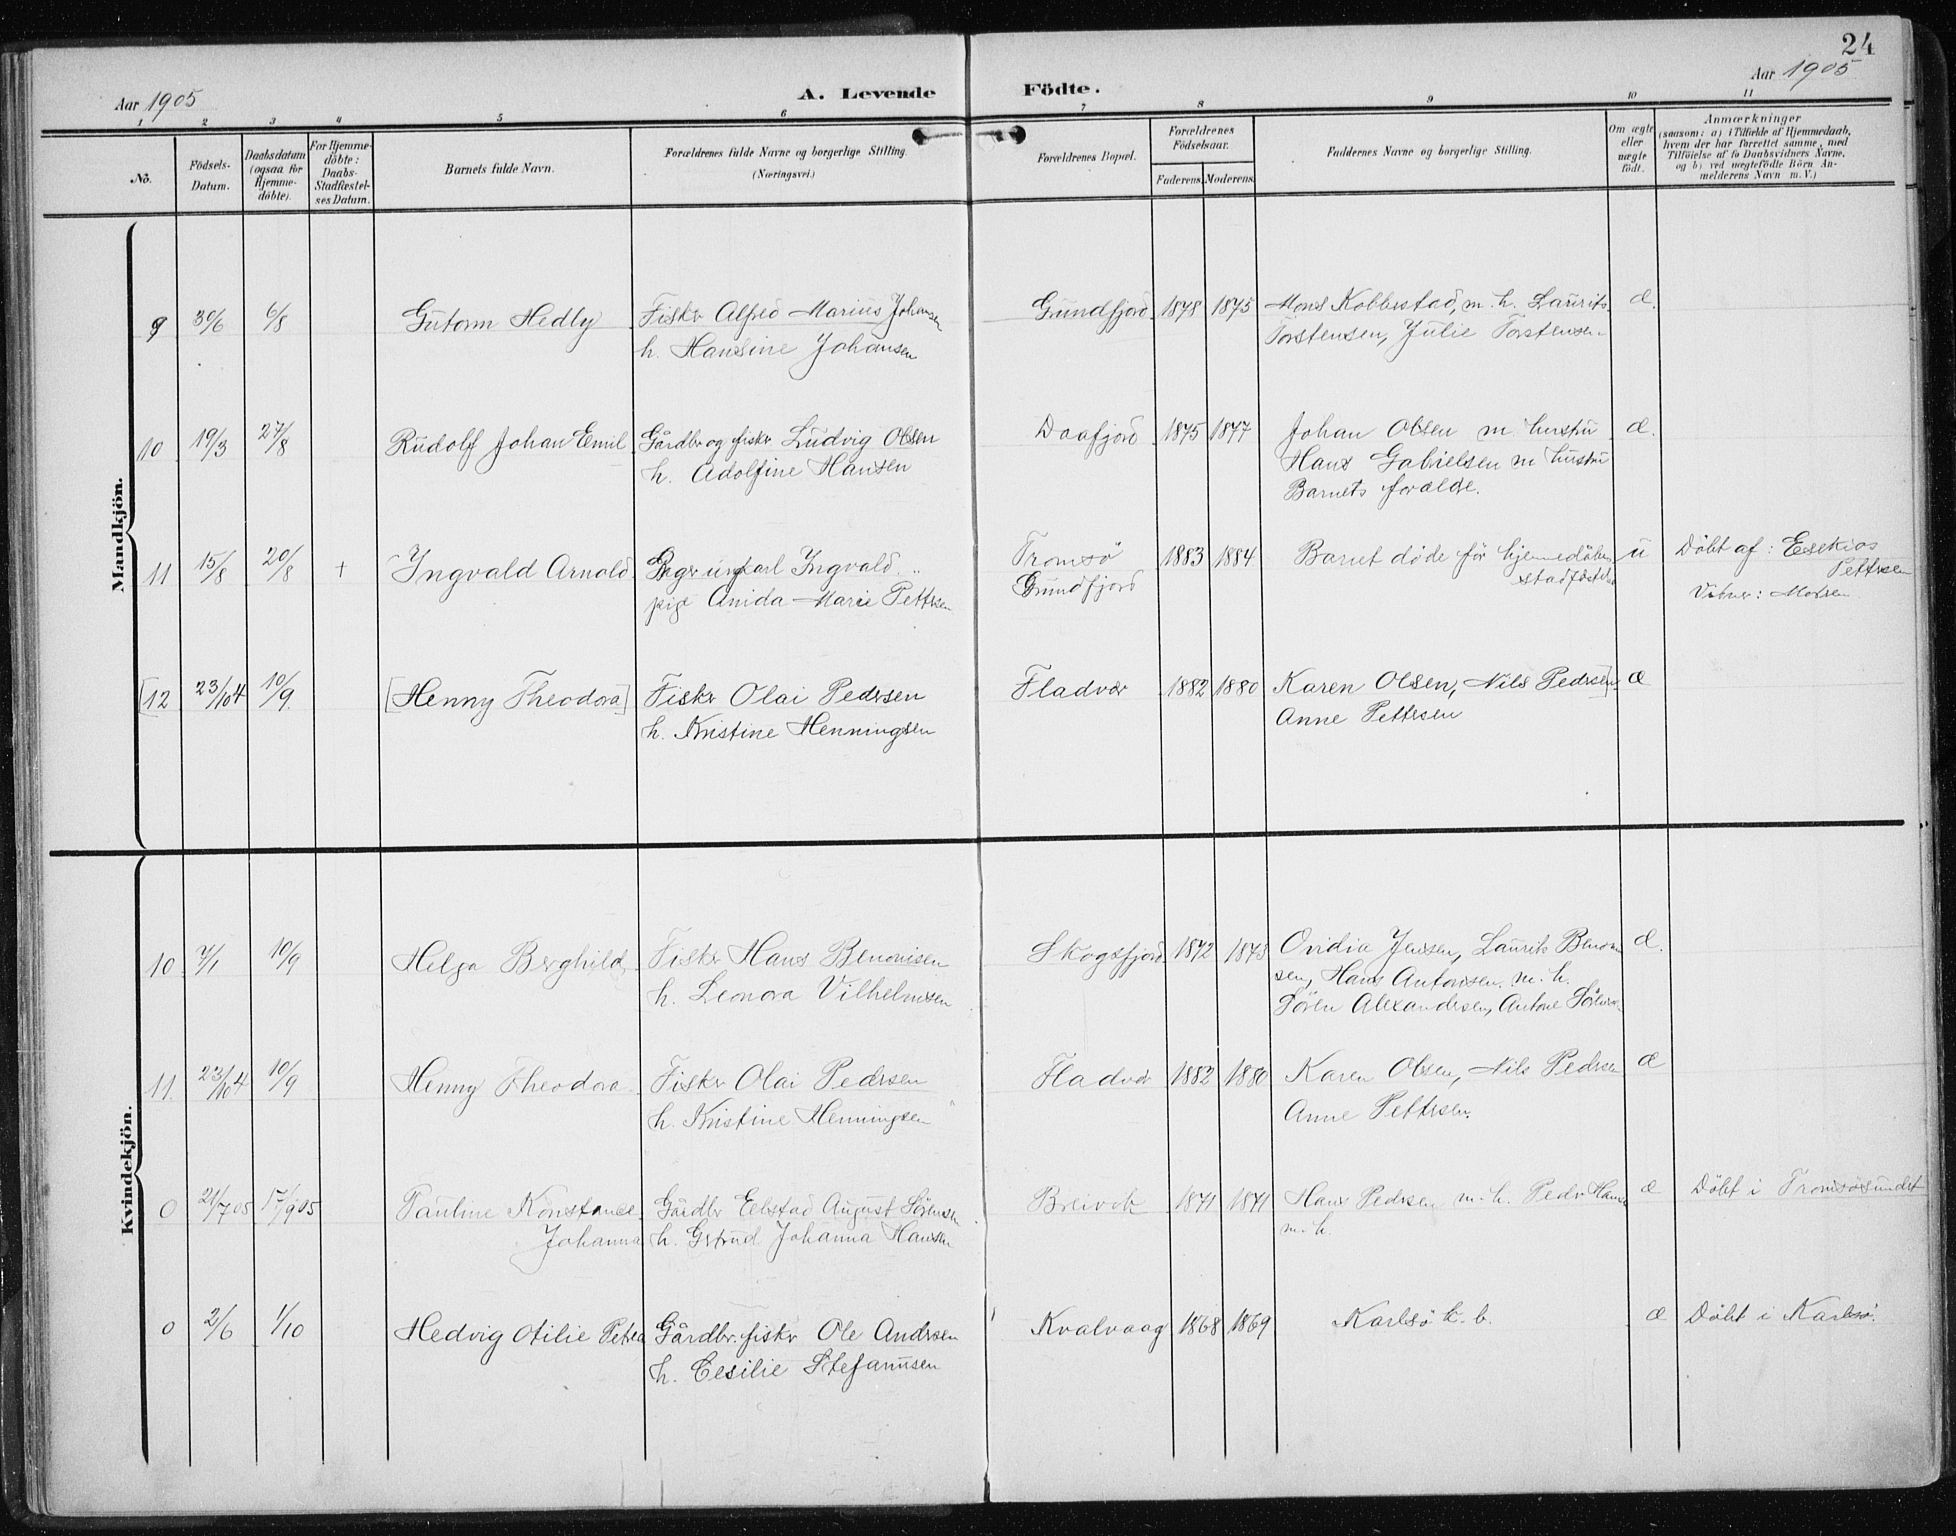 24
Aar 1905
A. Levende Födte.
Aar 1905
1 2 3 4 5 6 7 8 9 10 11
No.
Födsels-
Datum.
Daabsdatum
(ogsaa for
Hjemme-
döbte).
For Hjemme-
döbte:
Daabs-
Stadfæstel-
ses Datum.
Barnets fulde Navn.
Forældrenes fulde Navne og borgerlige Stilling.
(Næringsvei.)
Forældrenes Bopæl.
Forældrenes
Födselsaar.
Faderens. Moderens.
Faddernes Navne og borgerlige Stilling.
Om ægte
eller
uægte
födt.
Anmærkninger
(saasom: a) i Tilfælde af Hjemmedaab,
hvem der har forrettet samme, med
Tilföielse af to Daabsvidners Navne,
og b) ved uægtefödte Börn An-
melderens Navn m. V.)
Mandkjön.
9 30/6 6/8 Gutorm Hedly Fisker Alfred Marius Johansen Gründfjord 1878 1875 Mons Kobbestad, m. h. Laurits æ.
h. Hansine Johansen Torstensen, Julie Torstensen
10 19/3 27/8 Rudolf Johan Emil Gårdbr og fisker Ludvig Olsen Daafjord 1875 1877 Johan Olsen m hustru æ.
h. Adolfine Hansen Hans Gabrielsen m hustru
Barnets forældre.
11 15/8 20/8 + Ingvald Arnold ungkarl Ingvald Tromsö 1883 1884 Barnet døde før hjemmedåben u Döbt af: Esekias
pige Anida Marie Pettersen Grundfjord stadfæstelse Pettersen
[12 23/10 4 10/9 [Henny Theodora] Fisker Olai Pedersen Fladvær 1882 1880 Karen Olsen, Nils Pedersen] æ
h. Kristine Henningsen Anne Pettersen
Kvindekjön.
10 7/1 10/9 Helga Berghild Fisker Hans Benonisen Skogsfjord 1872 1873 Ovidia Jensen, Laurits Benoni- æ.
h. Leonora Vilhelmsen sen, Hans Antonsen m. h.
Sören Alexandersen, Antone
11. 23/10 4 10/9 Henny Theodora Fisker Olai Pedersen Fladvær 1882 1880 Karen Olsen, Nils Pedersen æ
h. Kristine Henningsen Anne Pettersen.
0 21/7 05 17/9 05 Pauline Konstance Gårdbr Edstad August Sörensen Breivik 1871 1871 Hans Pedersen m. h. Peder Hansen æ Döbt i Tromsösundet
Johanna h. Gertrud Johanna Hansen m. h.
0 2/6 1/10 Hedvig Otilie Petrea Gårdbr. fisker Ole Andersen Kvalvaag 1868 1869 Karlsö k. b. æ Döbt i Karlsö.
h. Cesilie Stefanusen